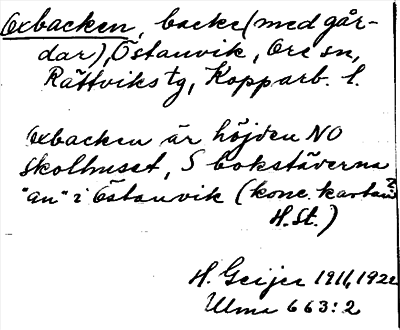 Oxbacken, backe (med går-
dar), Östanvik, Ore sn,
Rättviks tg, Kopparb. l.
Oxbacken är höjden NO
skolhuset, S bokstäverna
"an" i Östanvik (konc. kartan
H. St.)
H. Geijer 1911, 1922
Ulma 663:2